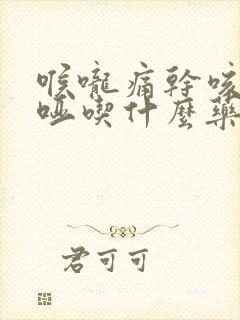 喉嚨痛幹咳
啞喫什麼藥
君可可